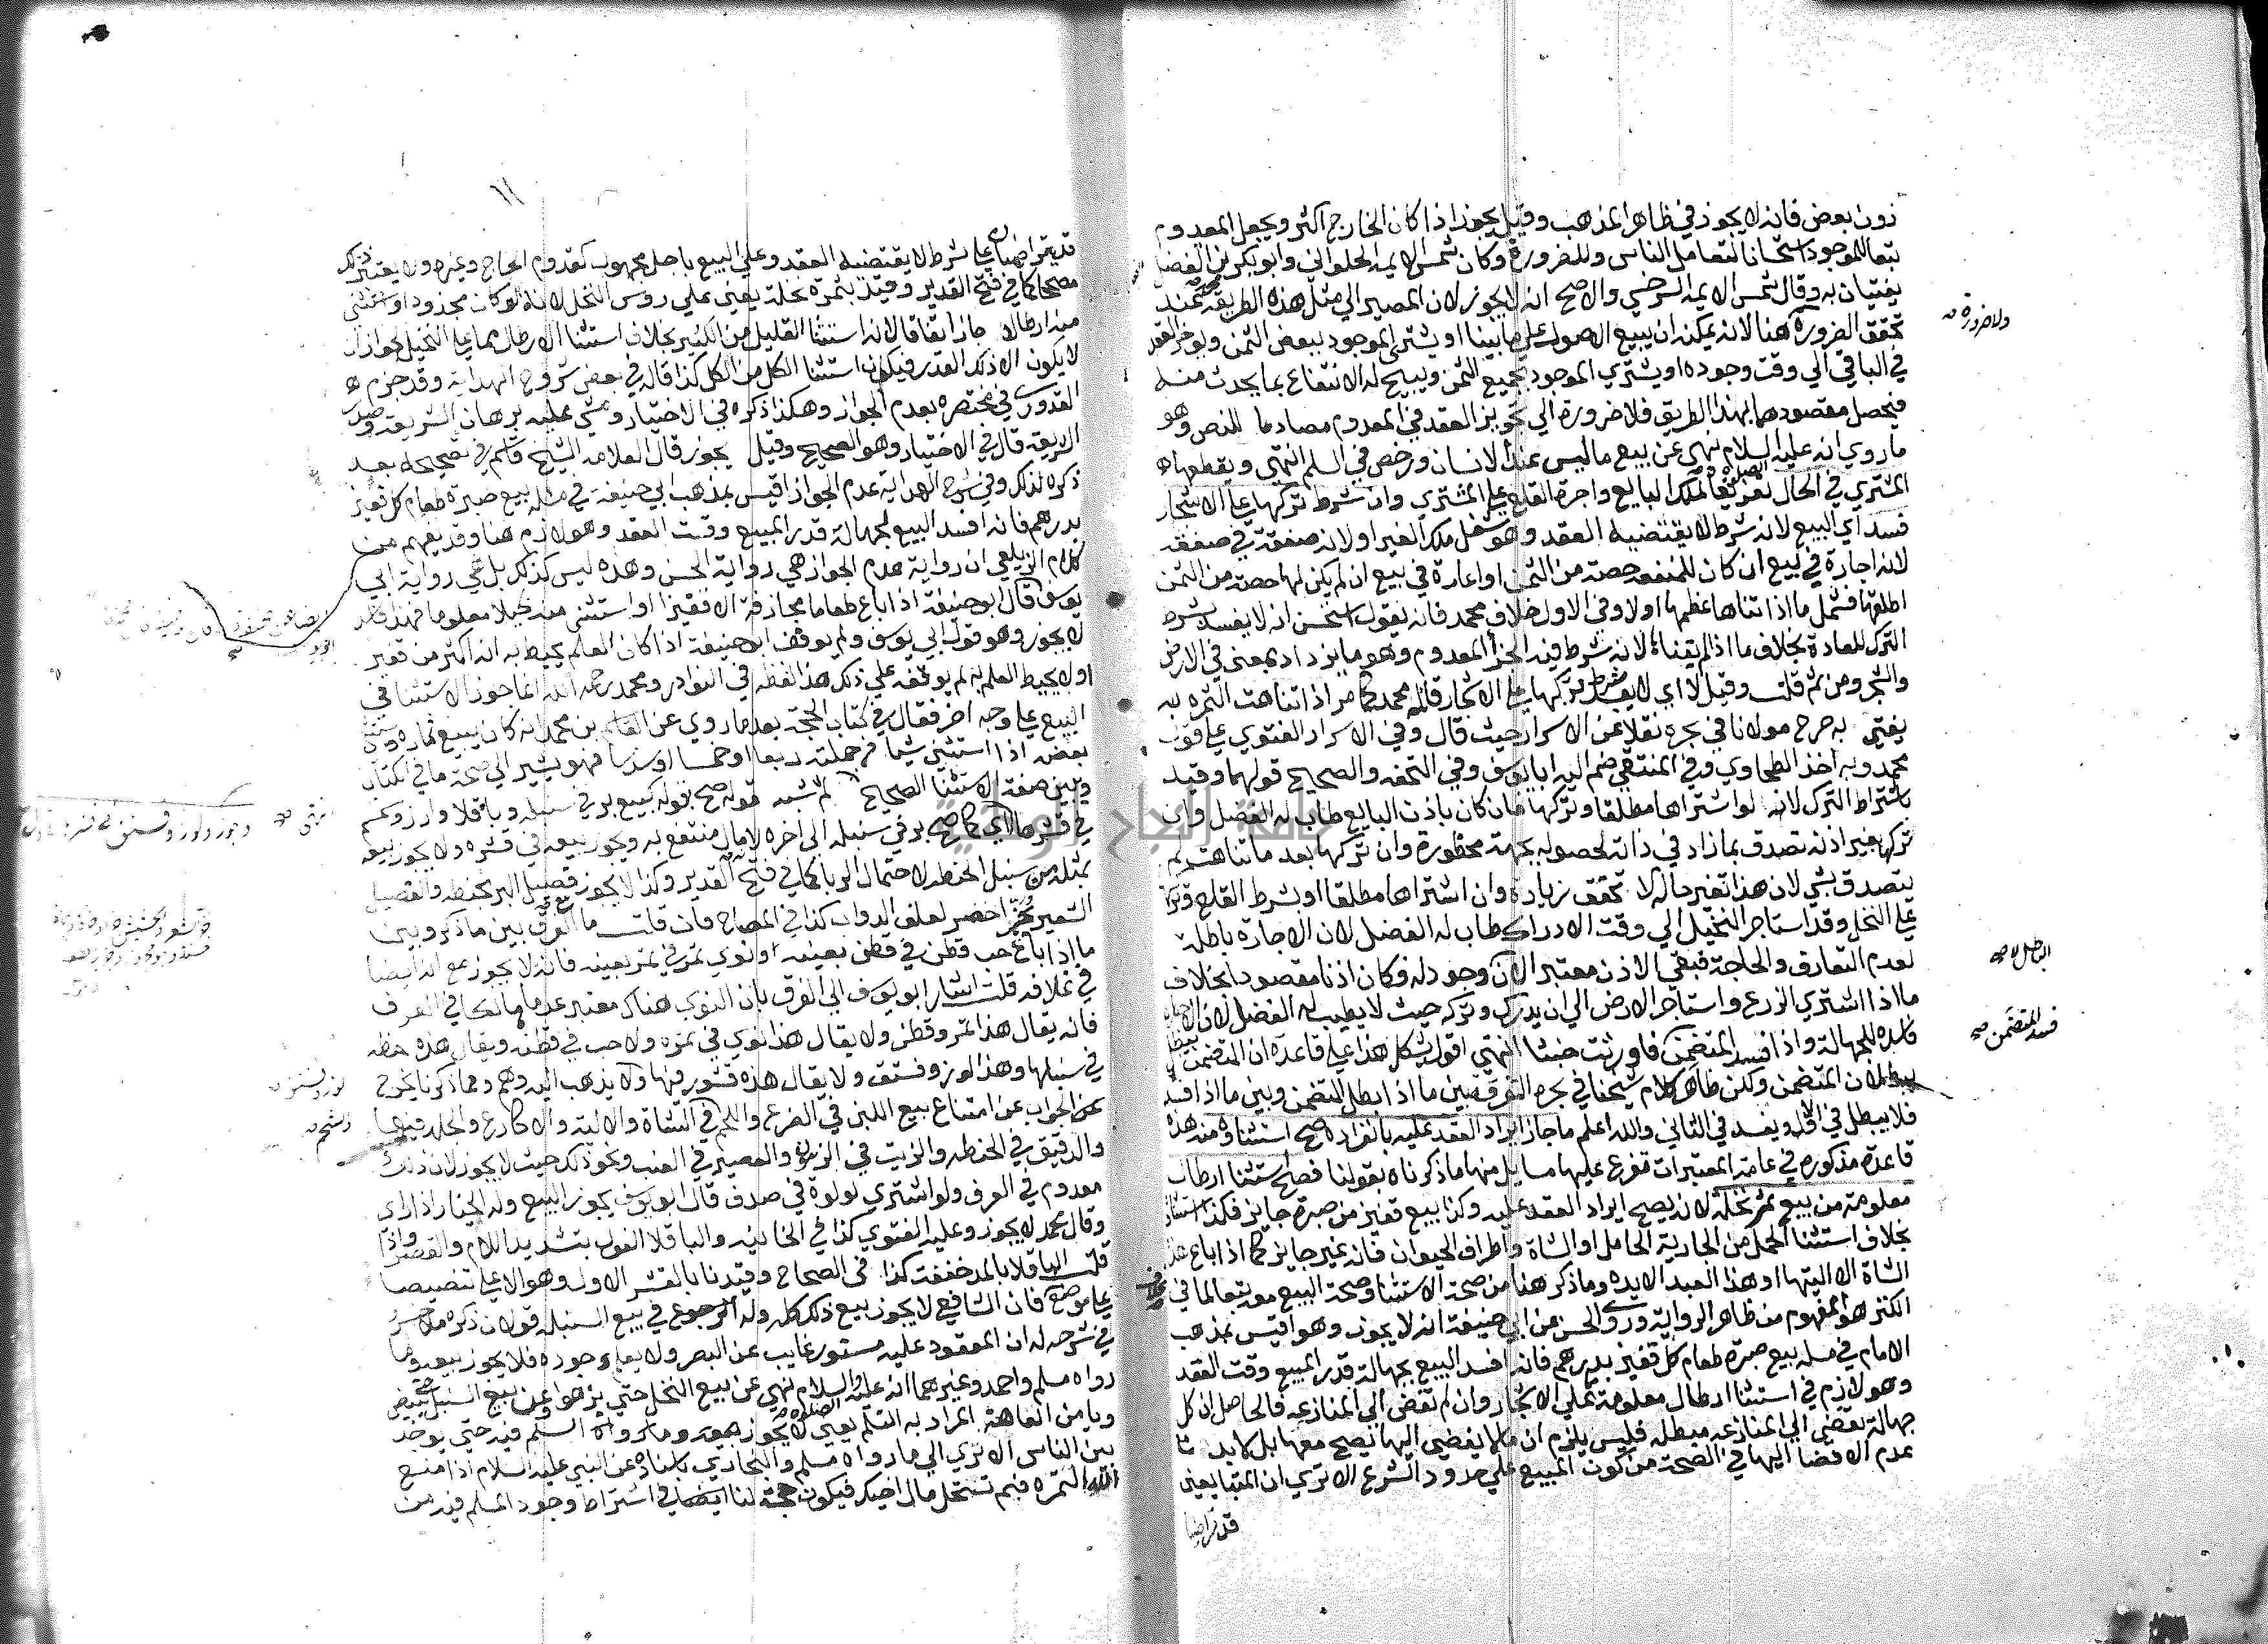 دون بعض فانه لا يجوز في ظاهر المذهب وقيل يجوز اذا كان الخارج اكثر ويجعل المعدوم
تبعا للموجود استحسانا لتعامل الناس وللضرورة وكان شمس الايمه الحلواني وابو بكر بن الفضل
يفتيان به وقال شمس الايمه السرخسي والاصح انه لا يجوز لان المصير الي مثل هذه الطريقه عند
تحقق الضرورة هنا لانه يمكنه ان يبيع الاصول على ما بينا او يشتري الموجود ببعض الثمن ويؤخر العقد
في الباقي الي وقت وجوده او يشتري الموجود بجميع الثمن ويبيح له الانتفاع بما يحدث منه
فيحصل مقصودهما بهذا الطريق فلا ضرورة الي تجويز العقد في المعدوم مصادما للنص وهو
ما روي انه عليه السلام نهي عن بيع ما ليس عند الانسان ورخص في السلم انتهي ويقطعها
المشتري في الحال تفريغا لملك البايع واجرة القلع علي المشتري وان شرط تركها علي الاشجار
فسد اي البيع لانه شرط لا يقتضيه العقد وهو شغل ملك الغير او لانه صفقة في صفقه
لانه اجارة في بيع ان كان للمنفعه حصة من الثمن او اعارة في بيع ان لم يكن لها حصة من الثمن
اطلقها فشمل ما اذا تناها عظمها او لا وفي الاول خلاف محمد فانه يقول استحسن انه لا يفسد بشرط
الترك للعادة بخلاف ما اذا لم يتناه لانه شرط فيه الجزء المعدوم وهو ما يزداد بمعني في الارض
والشجر ومن ثم قلت وقيل لا اي لا يفسد شرط تركها علي الاشجار قاله محمد كما مر اذا تناهت الثمره به
يفتي به صرح مولانا في بحره نقلا عن الاسرار حيث قال وفي الاسرار الفتوي علي قول
محمد وبه اخذ الطحاوي وفي المنتقي ضم اليه ابا يوسف وفي التحفه والصحيح قولهما وقيد
باشتراط الترك لانه لو اشتراها مطلقا وتركها فان كان باذن البايع طاب له الفضل وان
تركها بغير اذنه تصدق بما زاد في ذاته لحصوله بجهة محظورة وان تركها بعد ما تناهت لم
يتصدق بشي لان هذا تغير حالة لا تحقق زيادة وان اشتراها مطلقا او بشرط القلع وتركها
علي النخل وقد استاجر النخيل الي وقت الادراك طاب له الفضل لان الاجارة باطلة
لعدم التعارف والحاجة فبقي الاذن معتبرا لان وجود له فكان اذنا مقصودا بخلاف
ما اذا اشتري الزرع واستاجر الارض الي ان يدرك وتركه حيث لا يطيب له الفضل لان الاجارة
فاسده للجهالة واذا فسد المتضمن فاورثت خبثا انتهي اقول يشكل هذا علي قاعدة ان المتضمن يبطل
ببطلان المتضمن ولكن ظاهر كلام شيخنا في بحره التفرقة بين ما اذا بطل المتضمن وبين ما اذا فسد
فلا يبطل في الاول ويفسد في الثاني والله اعلم ما جاز ايراد العقد عليه بانفراده صح استثناوه منه هذه
قاعدة مذكوره في عامة المعتبرات مفرع عليها مسايل منها ما ذكرناه بقولنا فصح استثنا ارطال
معلومة من بيع ثمر نخلة لانه يصح ايراد العقد عليه وكذا بيع قفيز من صبرة جايز فكذا استثناه
بخلاف استثنا الحمل من الجارية الحامل او الشاة واطراف الحيوان فانه غير جايز كما اذا باع هذه
الشاة الا اليتها او هذا العبد الا يده وما ذكر هنا من صحة الاستثنا وصحة البيع معه تبعا لما في
الكنز هو المفهوم من ظاهر الرواية وروي الحسن عن ابي حنيفة انه لا يجوز وهو اقيس بمذهب
الامام في مسلة بيع صبرة طعام كل قفيز بدرهم فانه افسد البيع بجهالة قدر المبيع وقت العقد
وهو لازم في استثنا ارطال معلومة علي الاشجار وان لم تفض الي المنازعه فالحاصل ان كل
جهالة تفضي الي المنازعه مبطله فليس يلزم ان ما لا يفضي اليها يصح معها بل لا بد مع
عدم الافضا اليها في الصحة من كون المبيع علي حدود الشرع الا تري ان المتبايعين
قد تراضيا
ولا ضرورة
الباطل لا
فسد المتضمن
١١
قد يتراضيان علي شرط لا يقتضيه العقد وعلي البيع باجل مجهول كقدوم الحاج وغيره ولا يعتبر ذلك
مصححا كما في فتح القدير وقيد بثمرة نخلة يعني علي روس النخل لانه لو كان مجذودا واستثني
منه ارطالا جاز اتفاقا لانه استثنا القليل من الكثير بخلاف استثنا الارطال مما علي النخيل لجواز ان
لا يكون الا ذلك القدر فيكون استثنا الكل من الكل كذا قاله في بعض شروح الهداية وقد جزم
القدوري في مختصره بعدم الجواز وهكذا ذكره في الاختيار ومشي عليه برهان الشريعة وصدر
الشريعة قال في الاختيار وهو الصحيح وقيل يجوز قال العلامه الشيخ قاسم في تصحيحه بعد
ذكره لذلك وفي شرح الهداية عدم الجواز اقيس بمذهب ابي حنيفة في مسلة بيع صبرة طعام كل قفيز
بدرهم فانه افسد البيع لجهالة قدر المبيع وقت العقد وهو لازم هنا وقد يفهم من
كلام الزيلعي ان رواية عدم الجواز هي رواية الحسن وهذه ليس كذلك بل هي رواية ابي
يوسف قال ابو حنيفة اذا باع طعاما مجازفة الا قفيزا او استثني منه كيلا معلوما فهذا فاسد
لا يجوز وهو قول ابي يوسف ولم يوقف ابو حنيفة اذا كان العلم يحيط به انه اكثر من قفيز
اولا يحيط العلم به لم يوقفه علي ذلك هذا لفظه في النوادر ومحمد رحمه الله انما جوز الاستثنا في
البيع علي وجه اخر فقال في كتاب الحجة بعد ما روي عن القاسم بن محمد انه كان يبيع ثماره ويستثني
بعضه اذا استثني شيا من جملته ربعا او خمسا او سدسا فهو يشير الي صحة ما في الكتاب
وبين صفة الاستثنا الصحيح ثم شبه قوله صح بقوله كبيع بر في سنبله وباقلا وارز وسمسم
في قشرها اي كما صح بر في سنبله الي اخره لانه مال منتفع به ويجوز بيعه في قشره ولا يجوز بيعه
بمثله من سنبل الحنطه لاحتمال الربا كما في فتح القدير وكذا لا يجوز قصيل البر بحنطه والقصيل
الشعير يجز اخضر لعلف الدواب كذا في المصباح فان قلت ما الفرق بين ما ذكر وبين
ما اذا باع حب قطن في قطن بعينه او نوي تمر في تمر بعينه فانه لا يجوز مع انه ايضا
في غلافه قلت اشار ابو يوسف الي الفرق بان النوي هناك معتبر عدما هالكا في العرف
فانه يقال هذا تمر وقطن ولا يقال هذا نوي في تمره ولا حب في قطنه ويقال هذه حنطه
في سنبلها وهذا لوز وفستق ولا يقال هذه قشور فيها ولا يذهب اليه وهم ومما ذكرنا يخرج
عن الجواب عن امتناع بيع اللبن في الضرع واللحم في الشاة والالية والاكارع والجلد فيها
والدقيق في الحنطه والزيت في الزيتون والعصير في العنب ونحو ذلك حيث لا يجوز لان ذلك
معدوم في العرف ولو اشتري لولوة في صدف قال ابو يوسف يجوز البيع وله الخيار اذا راي
وقال محمد لا يجوز وعليه الفتوي كذا في الخانيه والباقلا الفول بتشديد اللام والقصر واذا
قلت الباقلا بالمد خففت كذا في الصحاح وقيدنا بالقشر الاول وهو الاعلي تنصيصا
علي موضع فان الشافعي لا يجوز بيع ذلك كله وله الرجوع في بيع السنبله قولان ذكره ملا خسرو
في شرحه له ان المعقود عليه مستور غايب عن البصر ولا يعلم وجوده فلا يجوز بيعه وما
رواه مسلم واحمد وغيرهما انه عليه الصلاة والسلام نهي عن بيع النخل حتي يزهو وعن بيع السنبل حتي يبيض
ويامن العاهة المراد به السلم يعني لا يجوز
بين الناس الا تري الي ما رواه مسلم والبخاري باسناده عن النبي عليه السلام اذا منع
الله الثمره فبم تستحل مال اخيك فيكون حجة لنا ايضا في اشتراط وجود المسلم فيه من